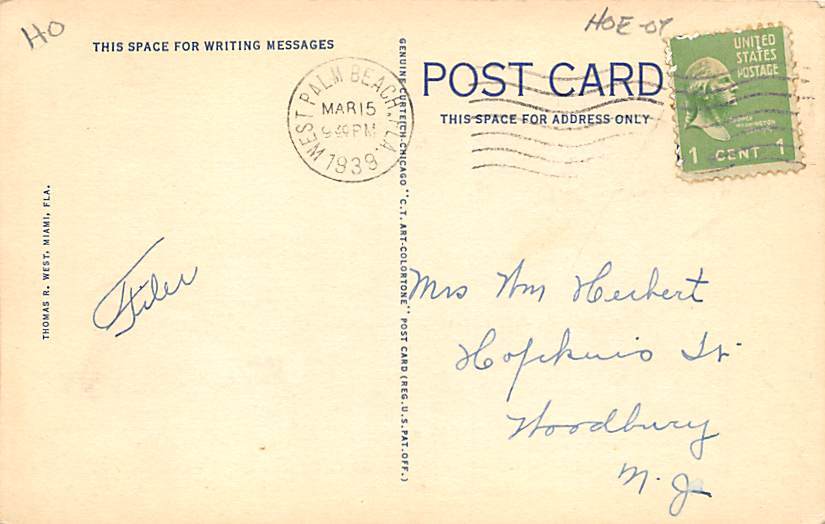 HO
HOE-07
THIS SPACE FOR WRITING MESSAGES
POST CARD
THIS SPACE FOR ADDRESS ONLY
UNITED
STATES
POSTAGE
1 CENT 1
WEST PALM BEACH, FLA.
MAR 15
PM
1939
GENUINE CURTEICH-CHICAGO "C.T. ART-COLORTONE" POST CARD (REG. U.S. PAT. OFF.)
THOMAS R. WEST, MIAMI, FLA.
Mrs Wm Herbert
Hopkins St.
Woodbury
N. J.